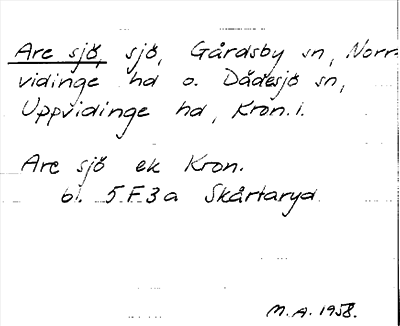 Are sjö, sjö, Gårdsby sn, Norr-
vidinge hd o. Dädesjö sn,
Uppvidinge hd, Kron. l.
Are sjö ek Kron.
bl. 5 F 3 a Skårtaryd
M.A. 1958.